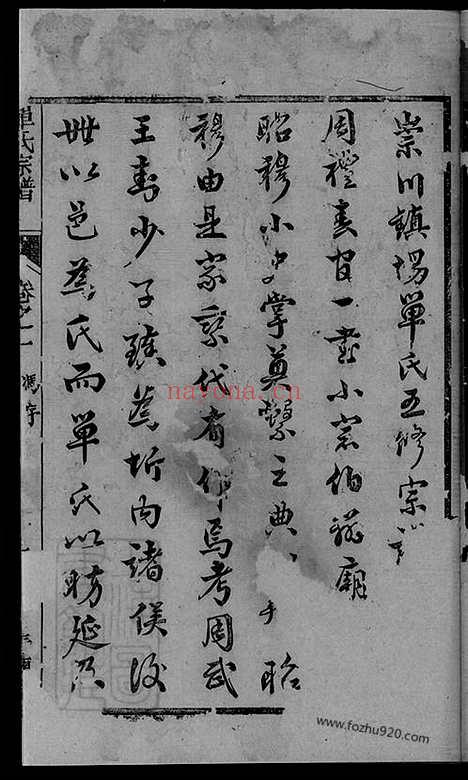 崇川鎮場單氏五修宗
周禮春官一書小宗伯辨廟
昭穆小史掌奠繫之典 昭
穆由是家乘代有作焉考周武
王封少子臻為圻內諸侯後
世以邑為氏而單氏以昉延及
單氏宗譜
卷之一
馮序
navona.cn
www.fozhu920.com